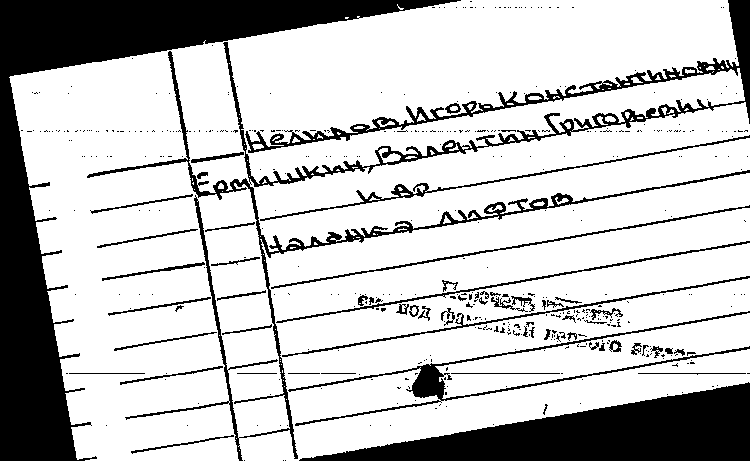 Нелидов, Игорь Константинович
Ермишкин, Валентин Григорьевич
и др.
Наладка лифтов.
Перечень изданий
см. под фамилией первого автора